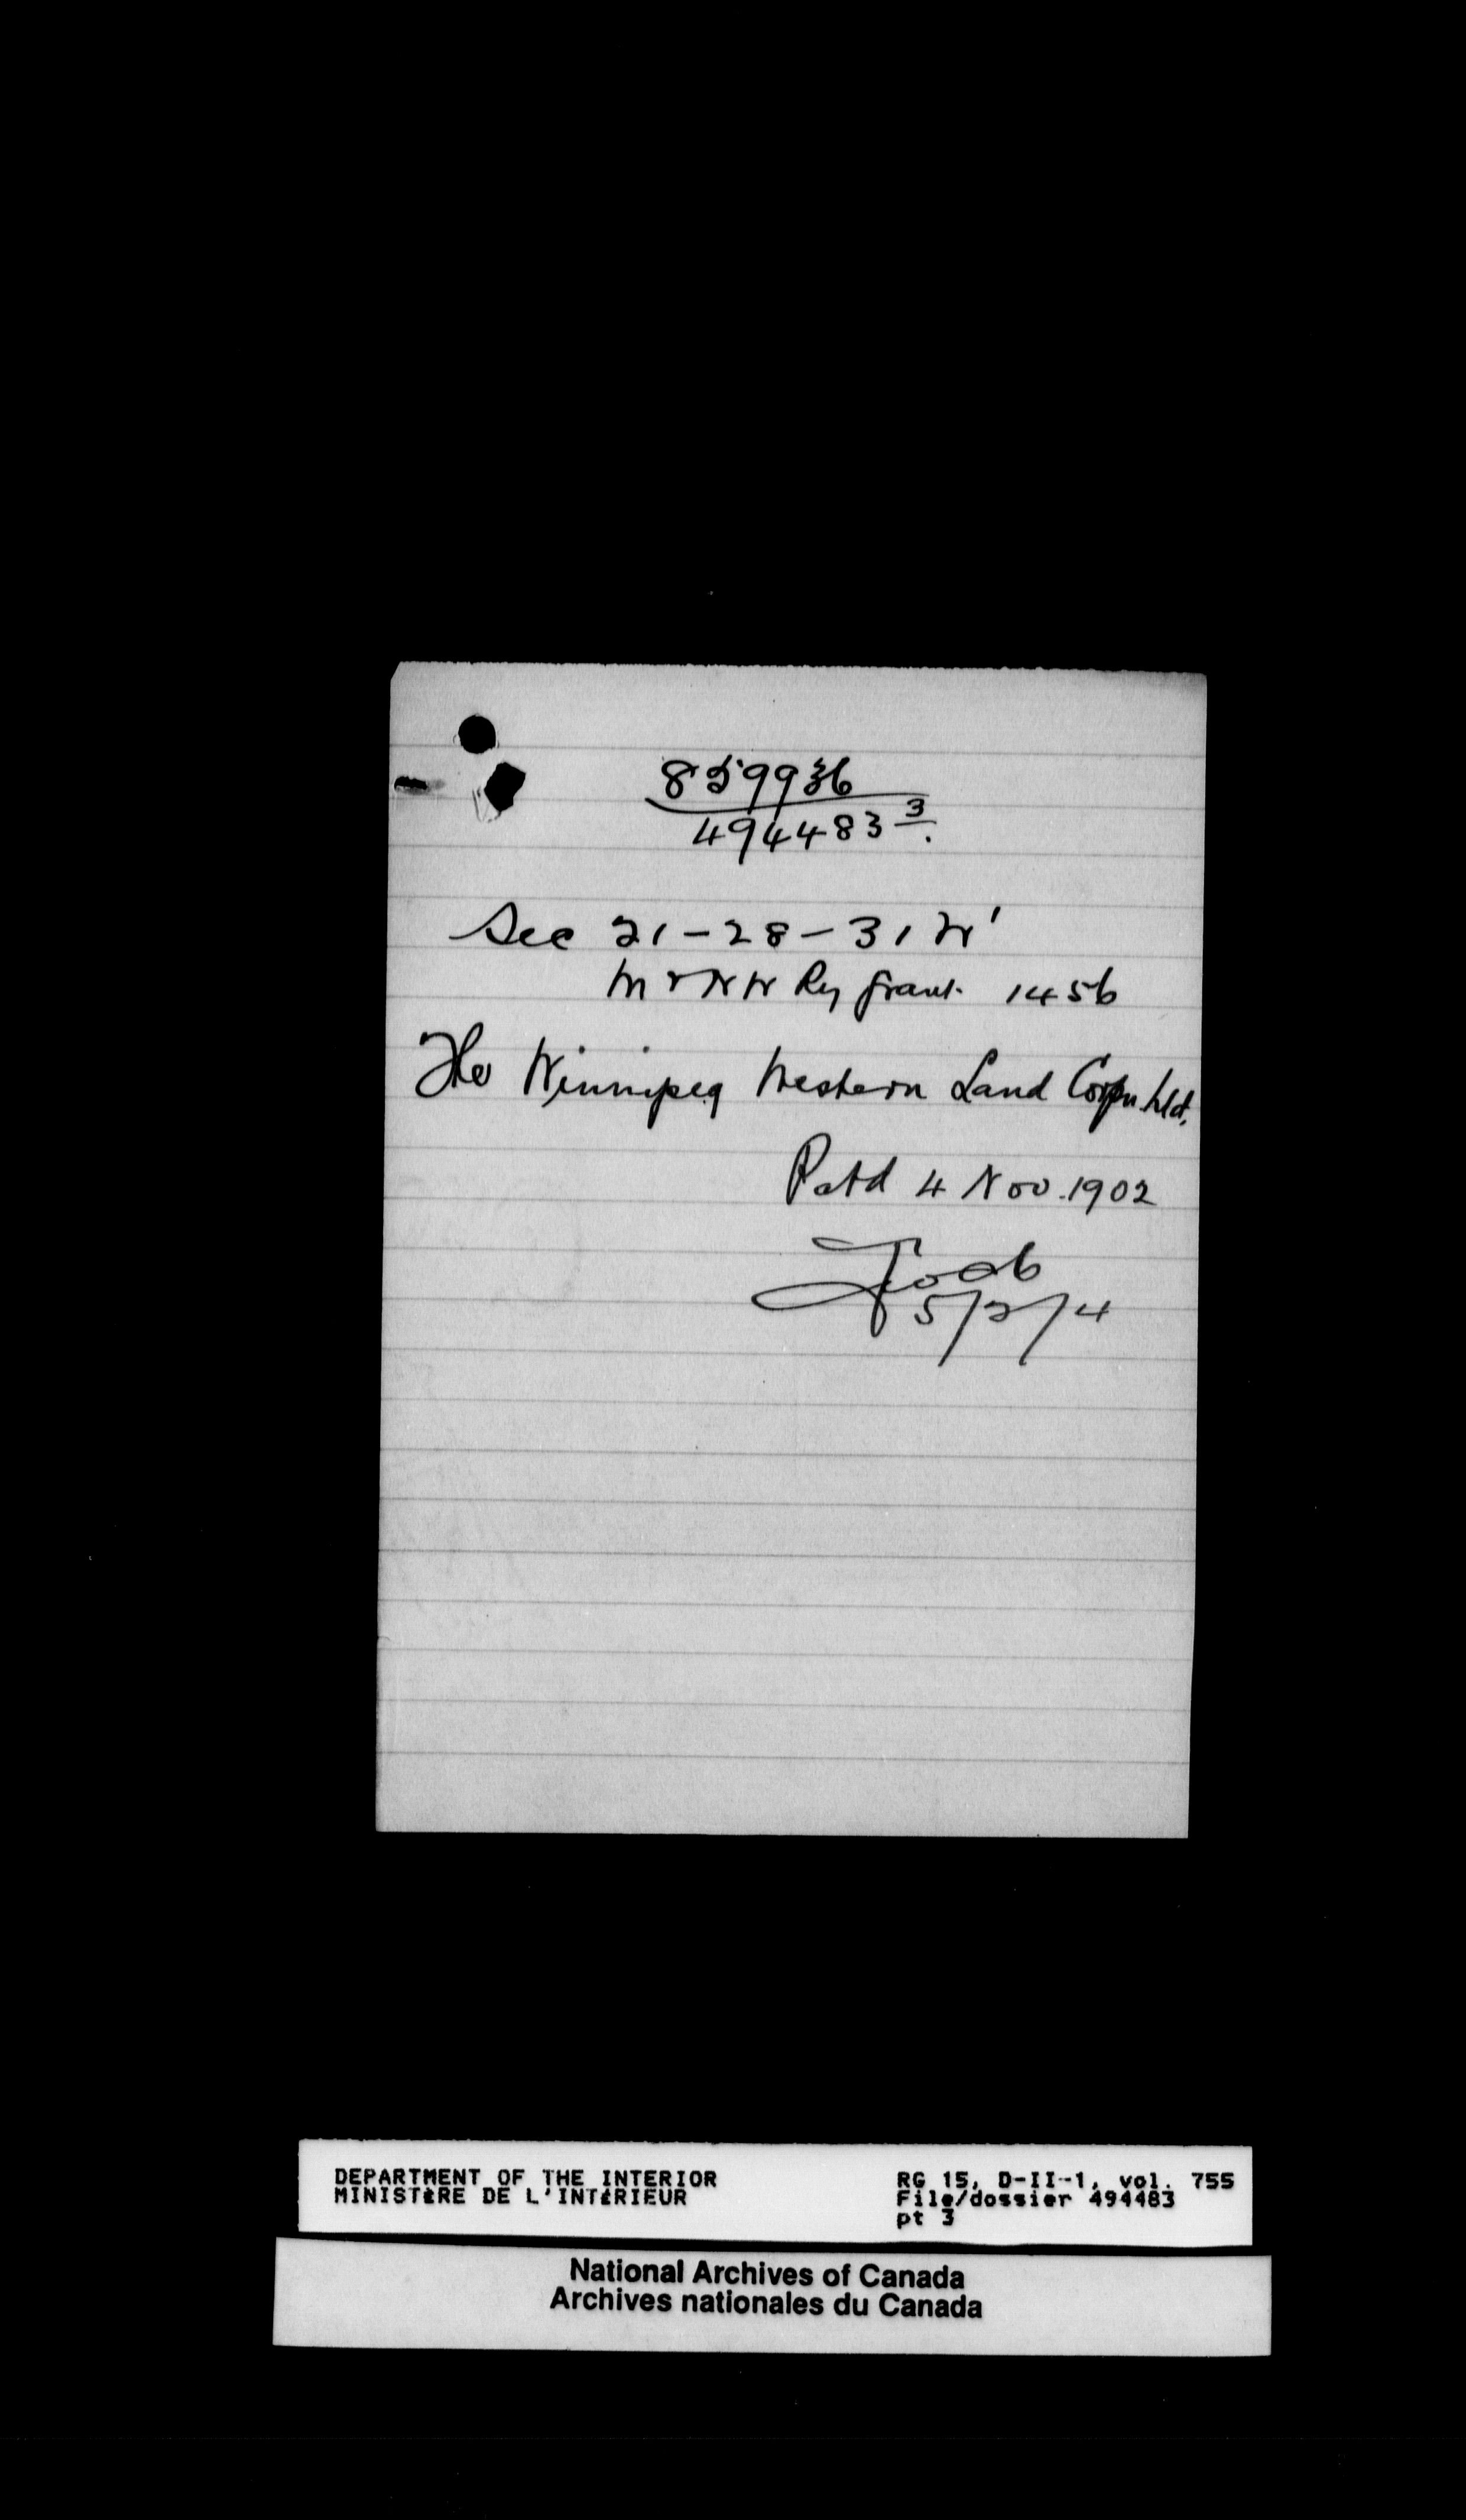 859936
494483 3.
Sec 21-28-31 W'
M & N W Ry Grant. 1456
The Winnipeg Western Land Corpn. Ltd.
Patd 4 Nov. 1902
5/2/4
DEPARTMENT OF THE INTERIOR
MINISTÈRE DE L'INTÉRIEUR
RG 15, D-II-1, vol. 755
File/dossier 494483
pt 3
National Archives of Canada
Archives nationales du Canada